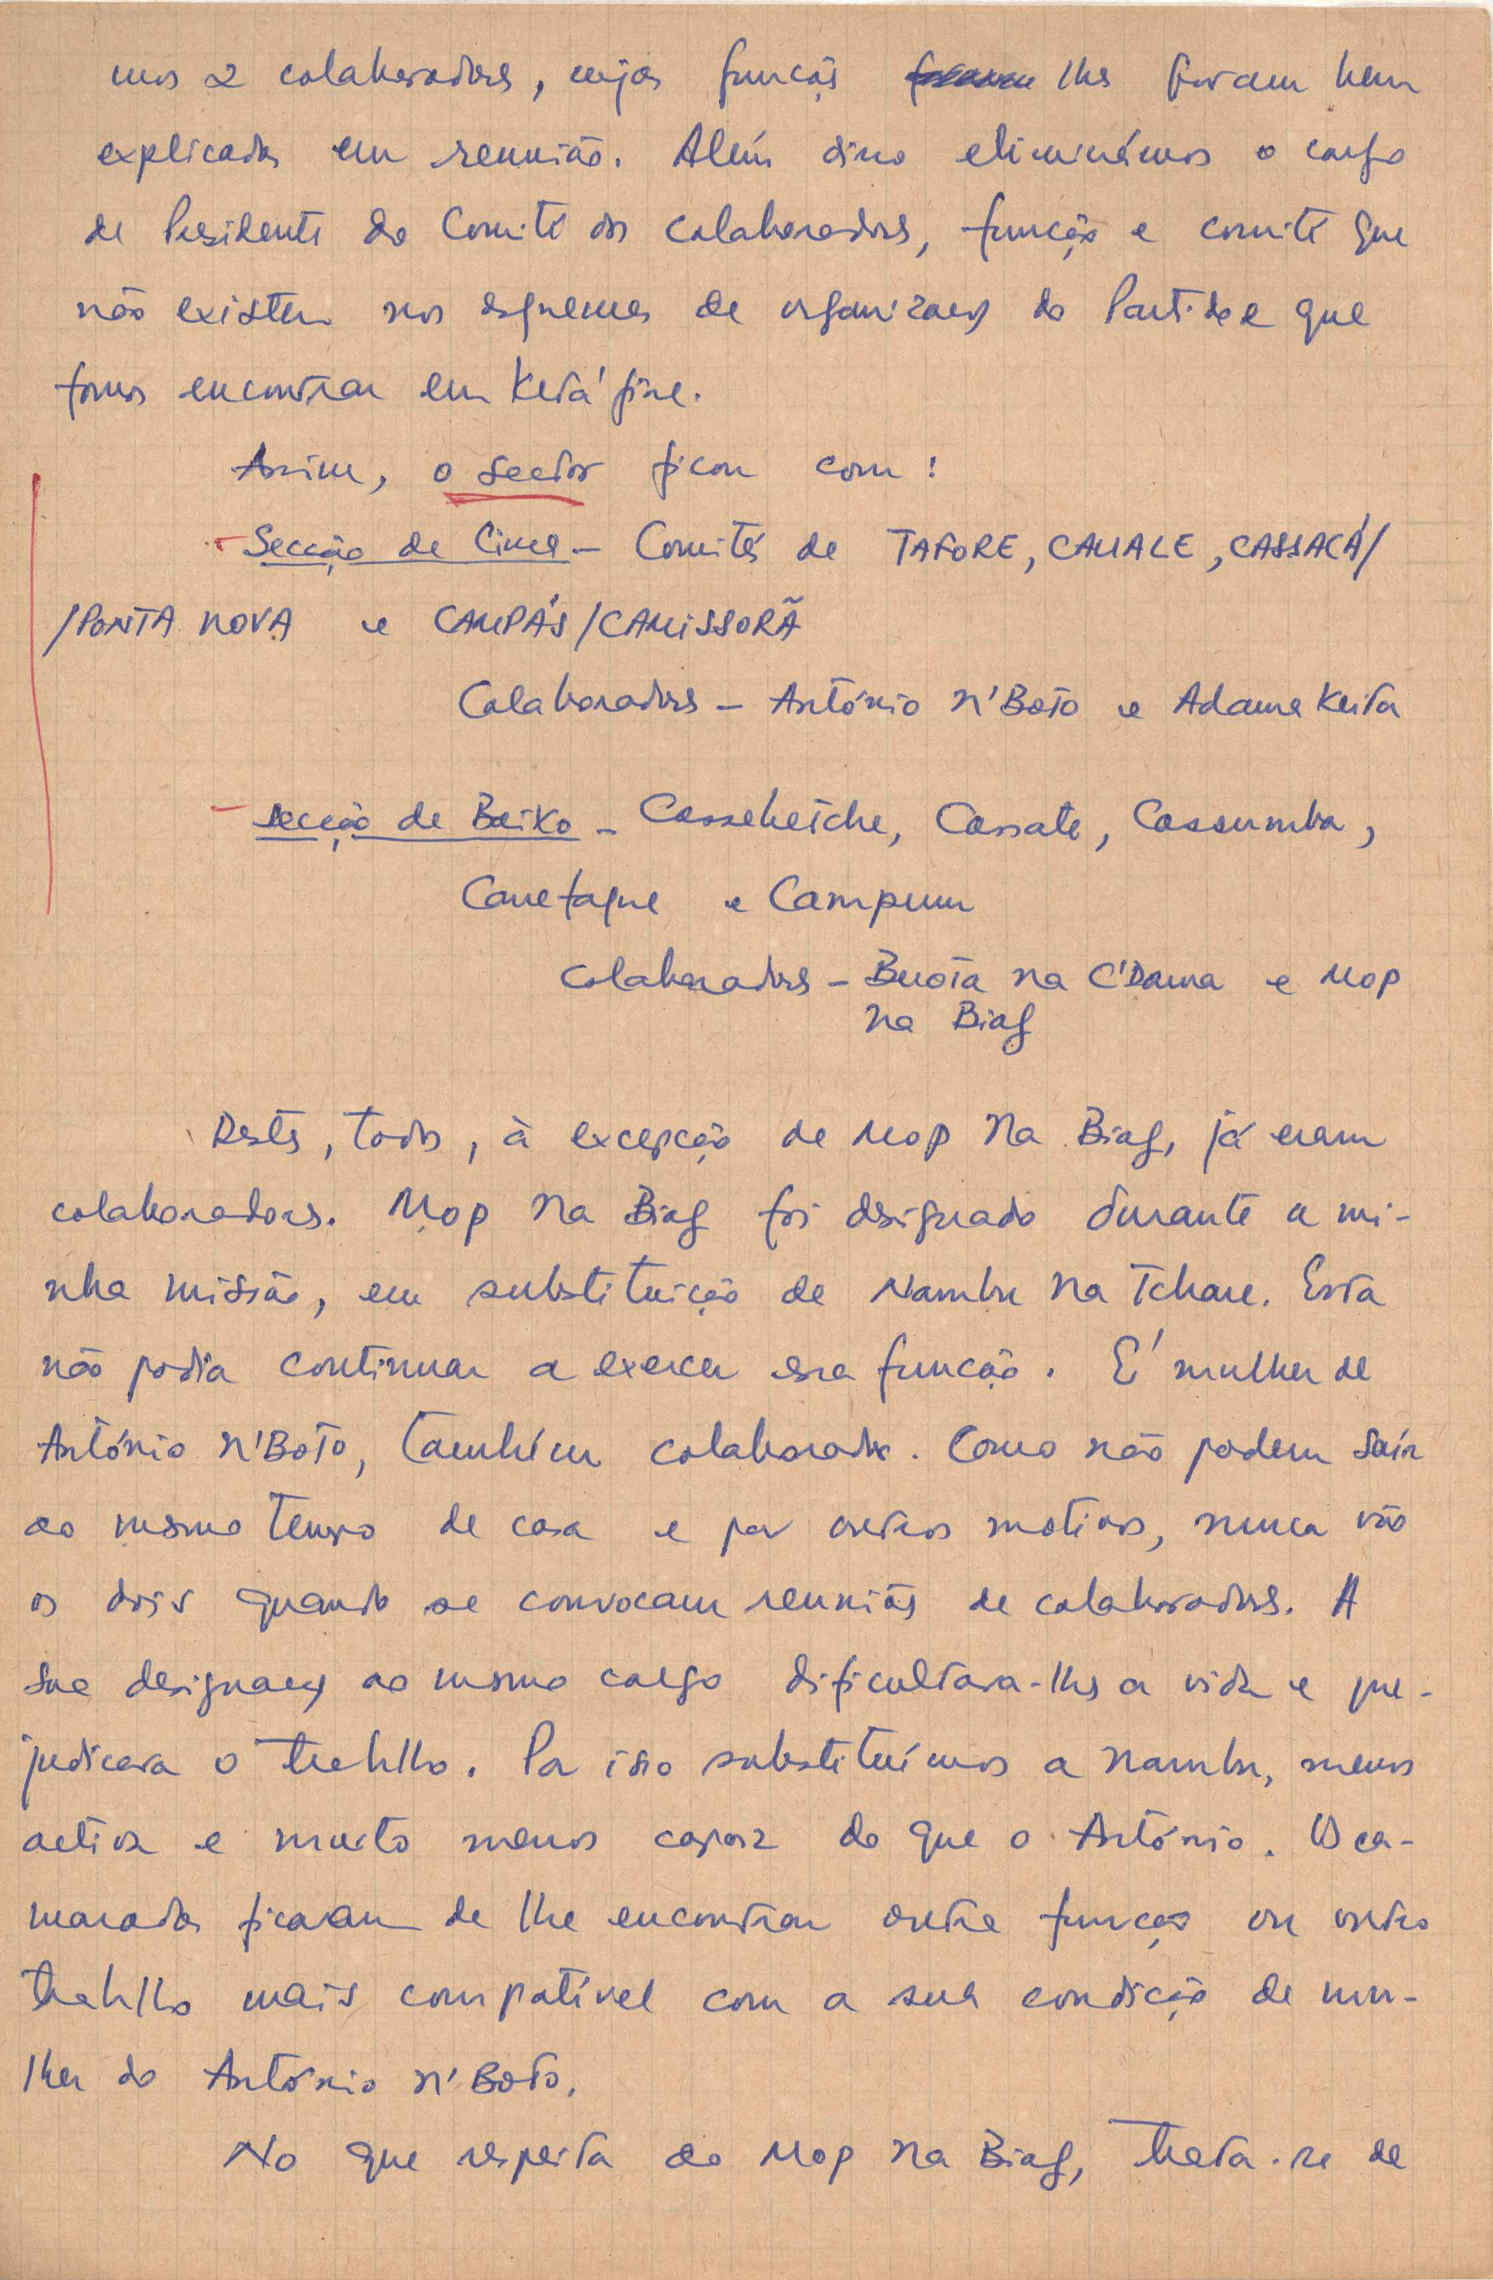 mos 2 colaboradores, cujas funções lhes foram bem
explicadas em reunião. Além disso eliminámos o cargo
de Presidente do Comité dos colaboradores, função e comité que
não existem nos esquemas de organização do Partido e que
fomos encontrar em Kitáfine.
Assim, o sector ficou com:
- Secção de Cima - Comités de TAFORE, CAUALE, CASSACÁ/
/PONTA NOVA e CAMPÁS/CAMISSORÃ
Colaboradores - António N'Boto e Adama Keita
- Secção de Baixo - Cassebetche, Cassate, Cassumba,
Canefaque e Campeum
Colaboradores - Buota na C'Dama e Mop
na Biag
Destes, todos, à excepção de Mop Na Biag, já eram
colaboradores. Mop Na Biag foi designado durante a mi-
nha missão, em substituição de Nambu Na Tchane. Esta
não podia continuar a exercer essa função. É mulher de
António N'Boto, também colaborador. Como não podem sair
ao mesmo tempo de casa e por outros motivos, nunca vão
os dois quando se convocam reuniões de colaboradores. A
sua designação ao mesmo cargo dificultava-lhes a vida e pre-
judicava o trabalho. Por isso substituímos a Nambu, menos
activa e muito menos capaz do que o António. Os ca-
maradas ficaram de lhe encontrar outra função ou outro
trabalho mais compatível com a sua condição de mu-
lher do António N'Boto.
No que respeita ao Mop Na Biag, trata-se de